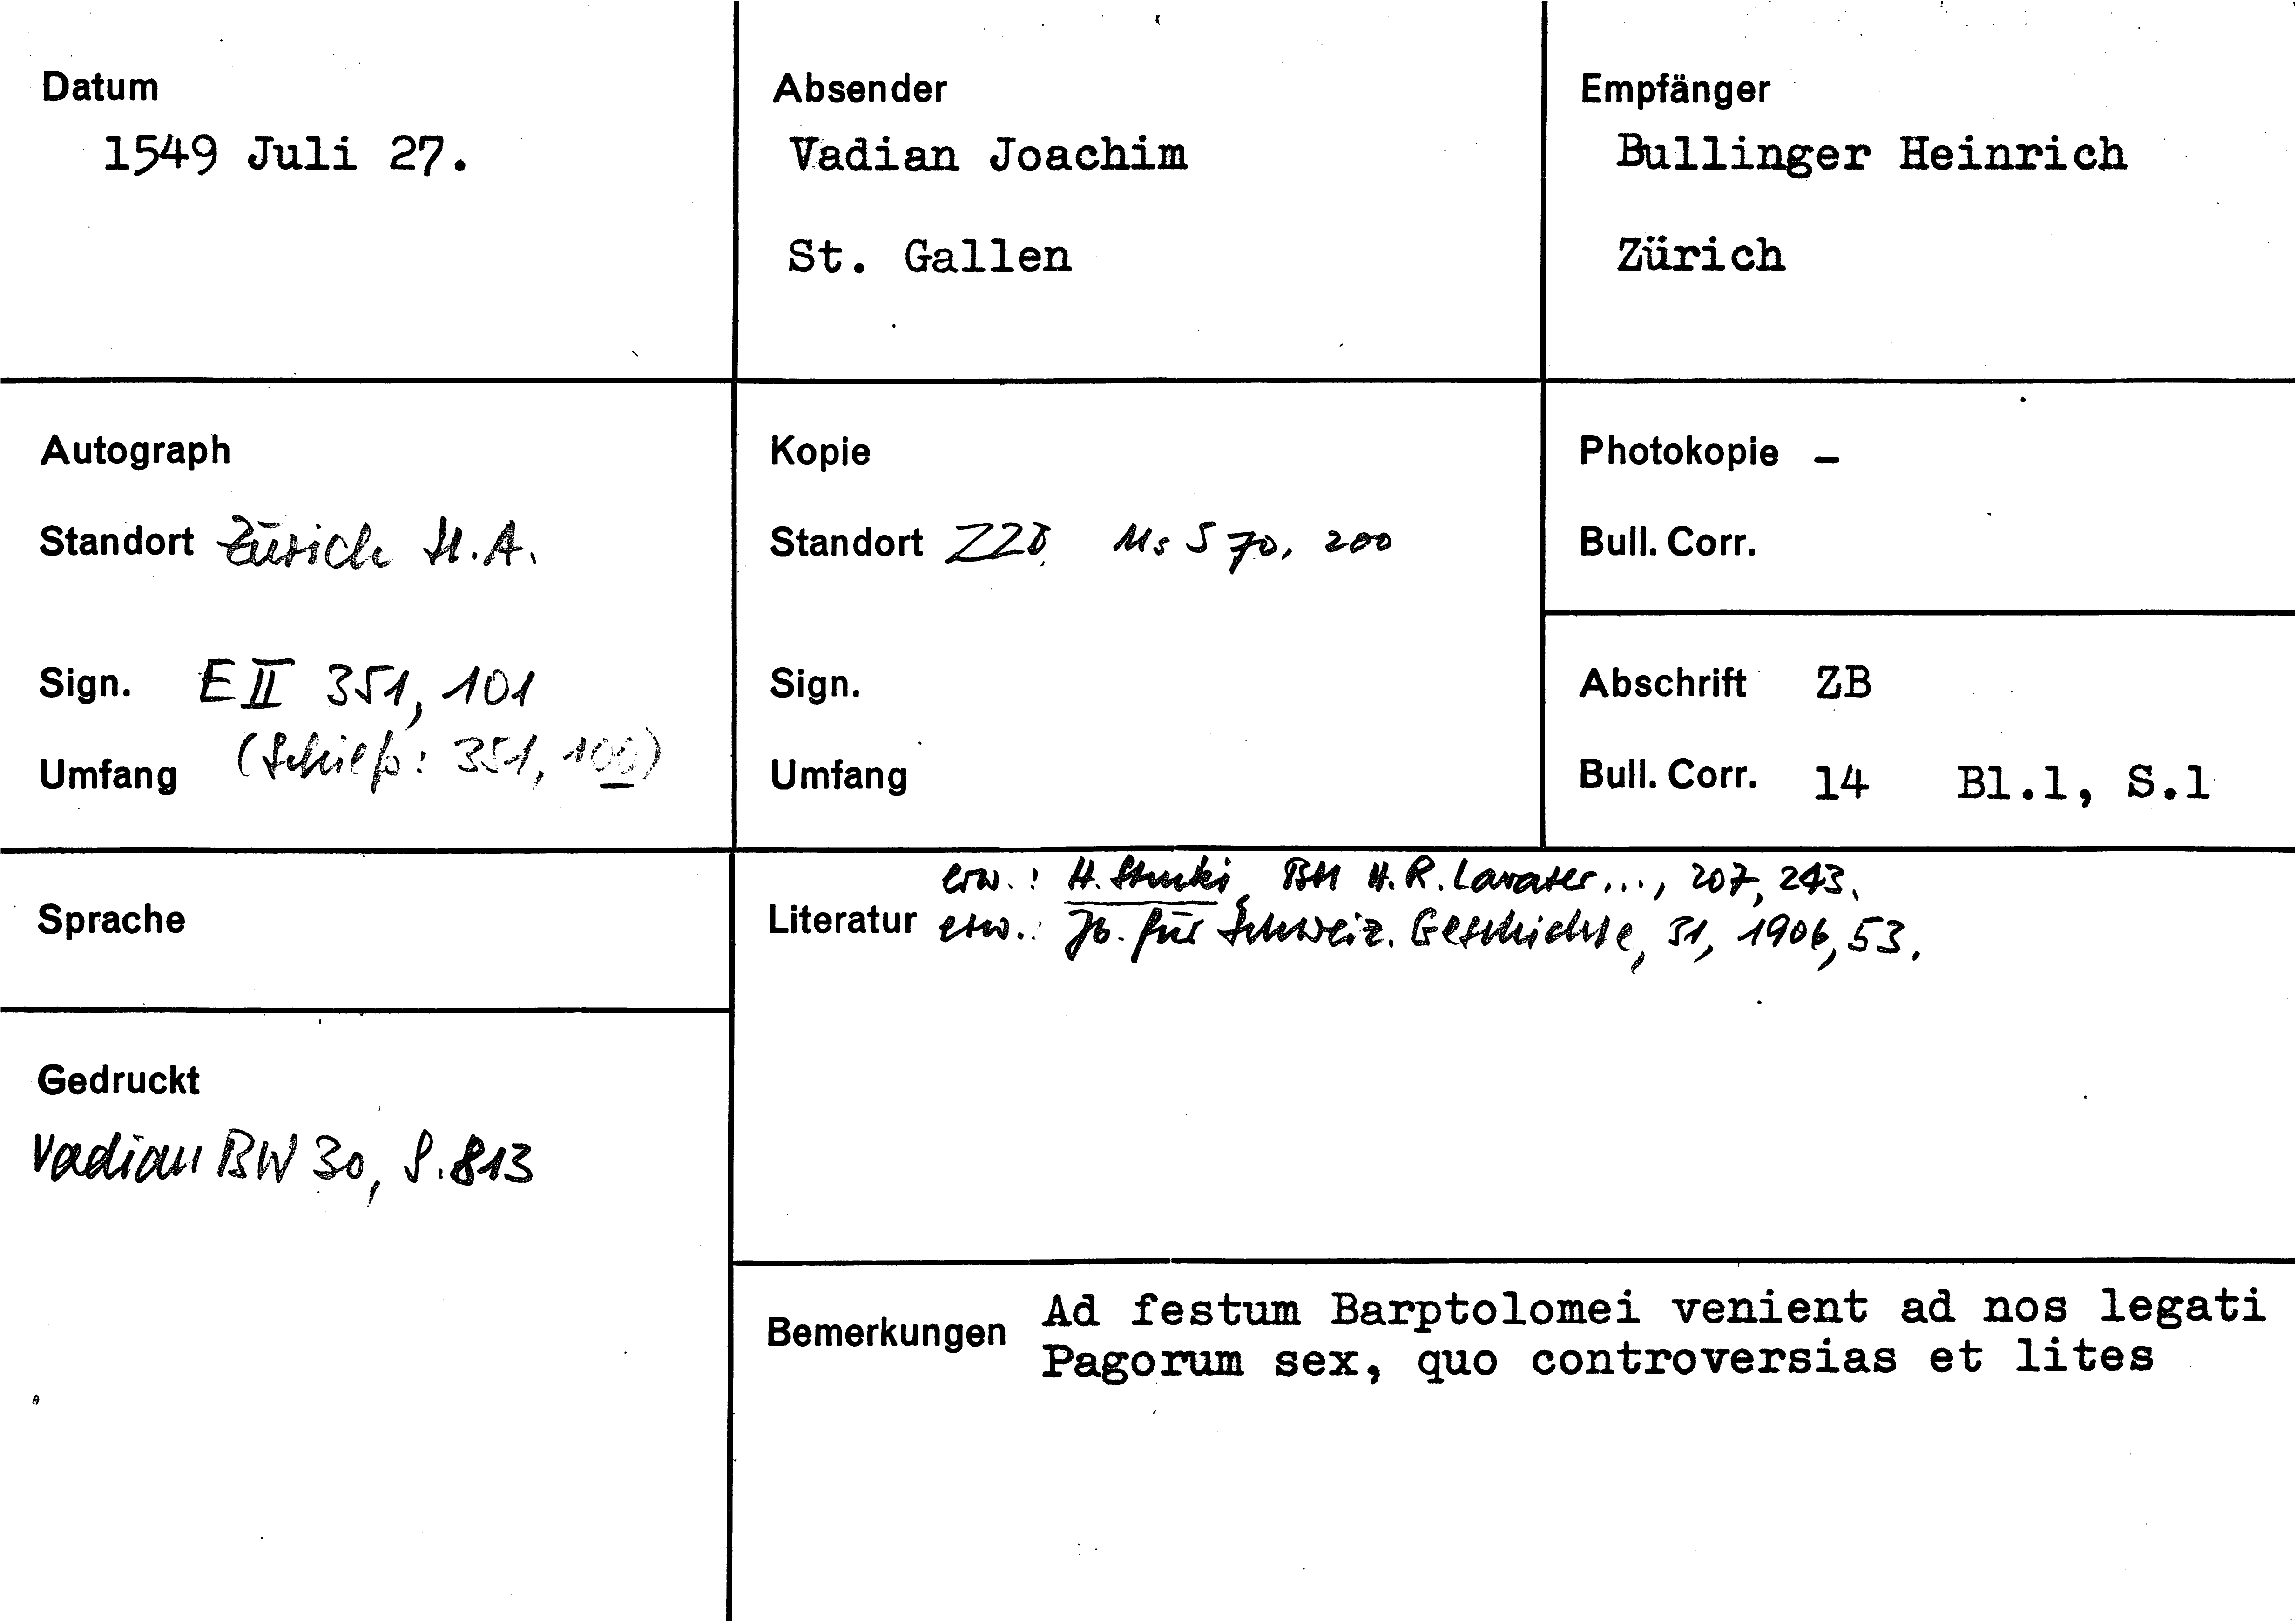 Datum
1549 Juli 27.
Absender
Vadian Joachim
St. Gallen
Empfänger
Bullinger Heinrich
Zürich
Autograph
Standort Zürich St.A.
Sign. E II 351, 101
(Schieß: 351, 100)
Umfang
Kopie
Standort ZZB, Ms S 70, 200
Sign.
Umfang
Photokopie –
Bull. Corr.
Abschrift ZB
Bull. Corr. 14 Bl.1, S.1
Sprache
Gedruckt
Vadian BW 30, S. 813
erw.: H. Stucki, BM H.R. Lavater..., 207, 243.
Literatur erw.: Jb. für Schweiz. Geschichte, 31, 1906, 53.
Bemerkungen
Ad festum Barptolomei venient ad nos legati
Pagorum sex, quo controversias et lites